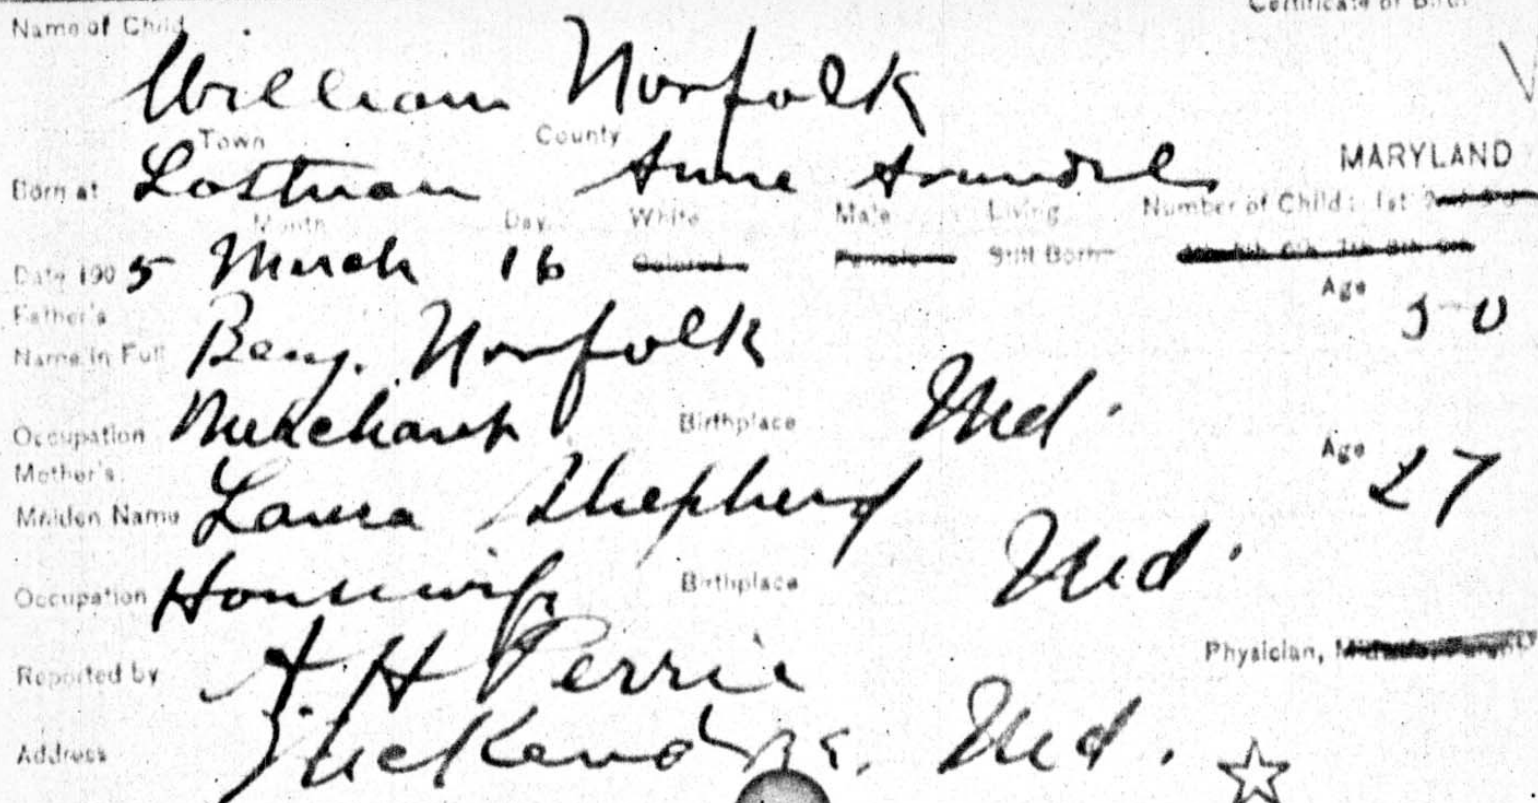 Certificate of Birth
Name of Child
William Norfolk
Town County
Born at Lostman Anne Arundel MARYLAND
Month Day White Male Living Number of Child: 1st
Date 190 5 March 16 Colored Female Still Born
Father's Age 50
Name in Full Benj. Norfolk
Occupation Merchant Birthplace Md.
Mother's Age 27
Maiden Name Laura Shepherd
Occupation Housewife Birthplace Md.
Reported by A. H Perrie Physician, Midwife, Parent
Address Md.